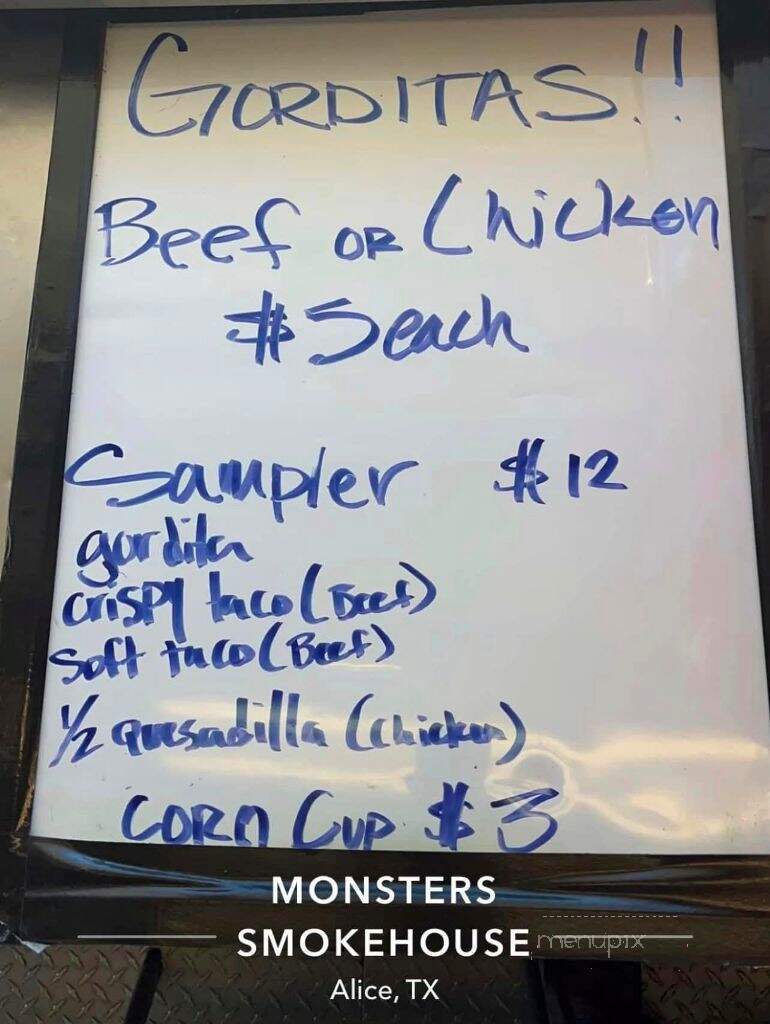 GORDITAS!!
Beef OR Chicken
$5 each
Sampler $12
gordita
crispy taco (Beef)
Soft taco (Beef)
1/2 quesadilla (Chicken)
CORN CUP $3
MONSTERS
SMOKEHOUSE
menupix
Alice, TX